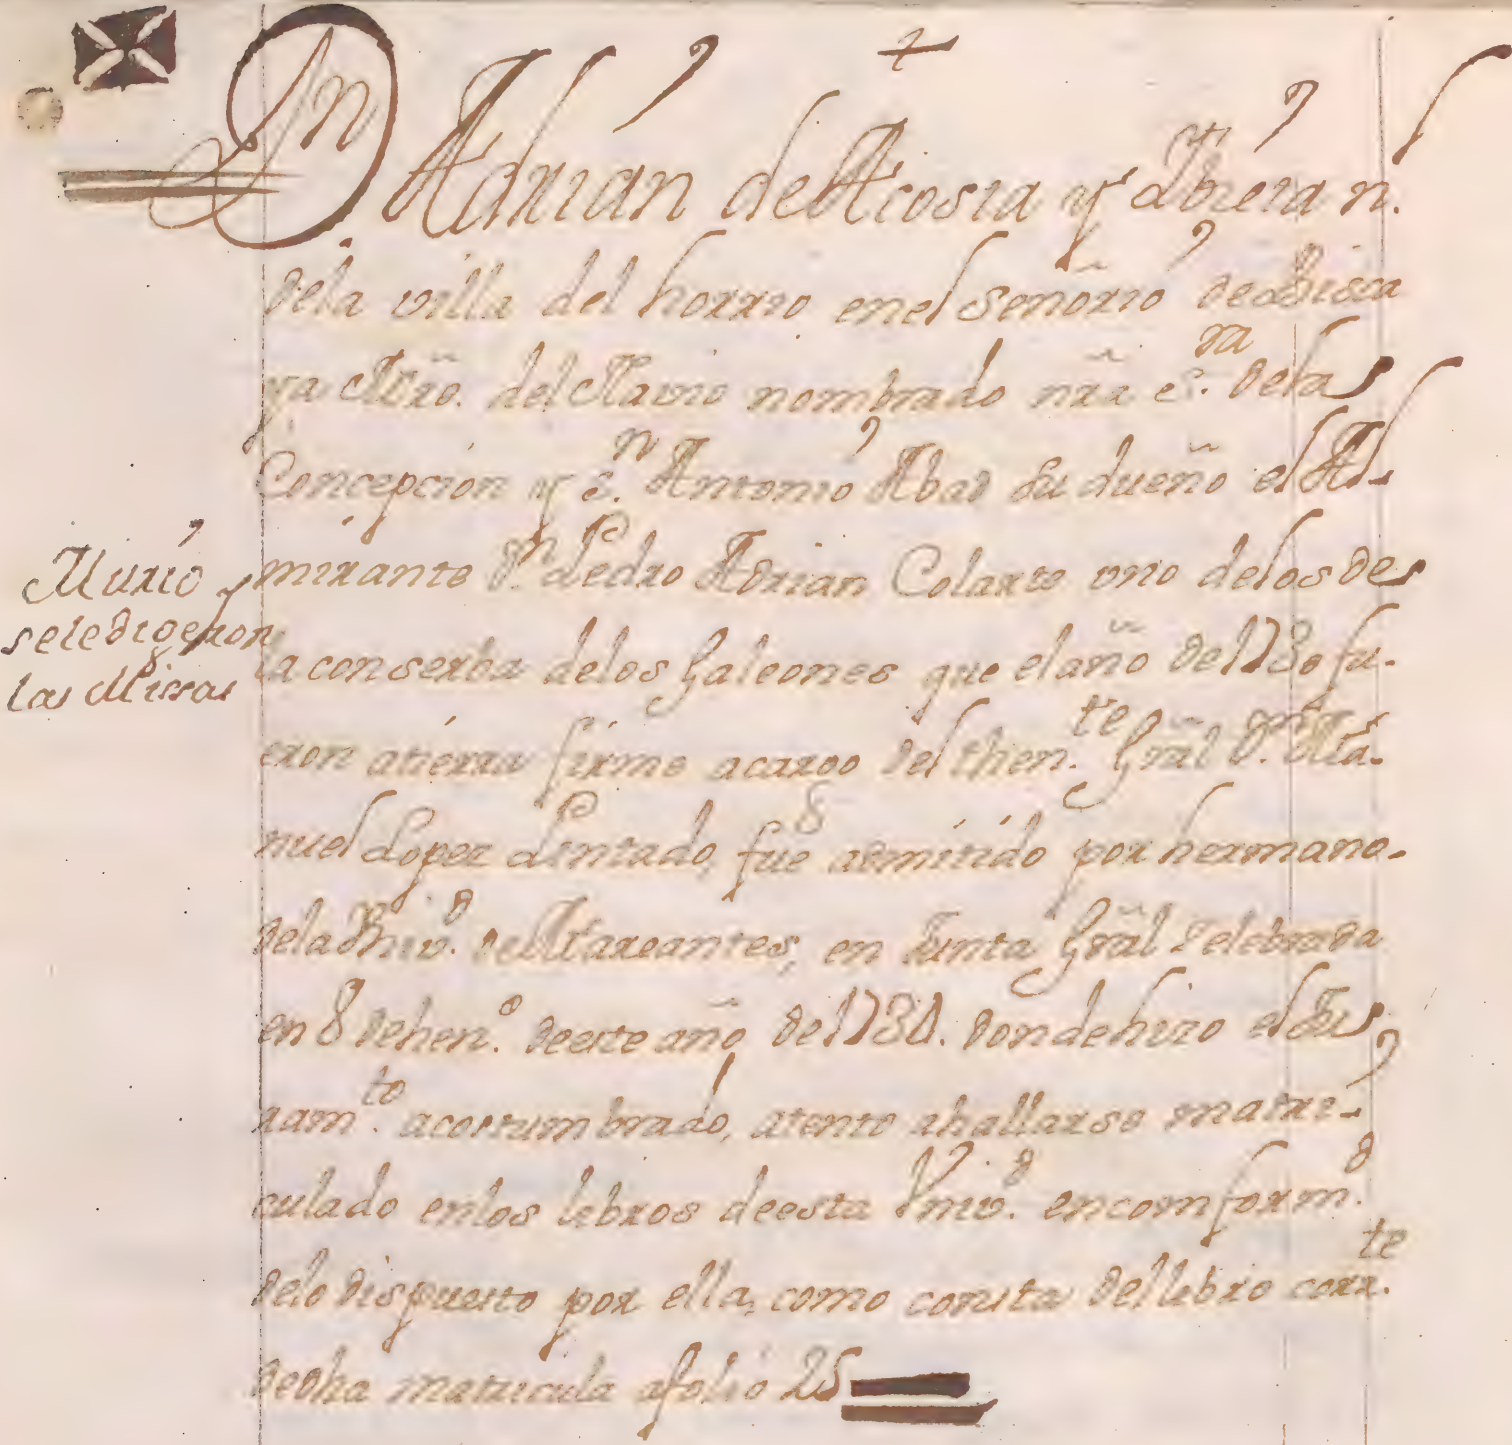 Dn Adrian de Acosta y Ybieta n.
de la villa del horrio en el Señorio de Bisca
ya Mro. del Navio nombrado nra S.ra de la
Concepcion y S.n Antonio Abad su dueño el Al-
mirante D.n Pedro Adrian Colarte uno de los de
la conserba de los Galeones que el año de 1730 fu-
eron a tierra firme a cargo del then.te Gral D.n Ma-
nuel Lopez Pintado, fue admitido por hermano
de la Univ.d de Mareantes, en Junta Gral Zelebrada
en 8 de hen.o de este año de 1731. donde hizo el Ju-
ram.to acostumbrado, atento a hallarse matri-
culado en los lebros de esta Univ.d en comform.d
de lo dispuesto por ella, como consta del lebro corr.te
de dha matricula a folio 25
Murio y
se le digeron
las Missas